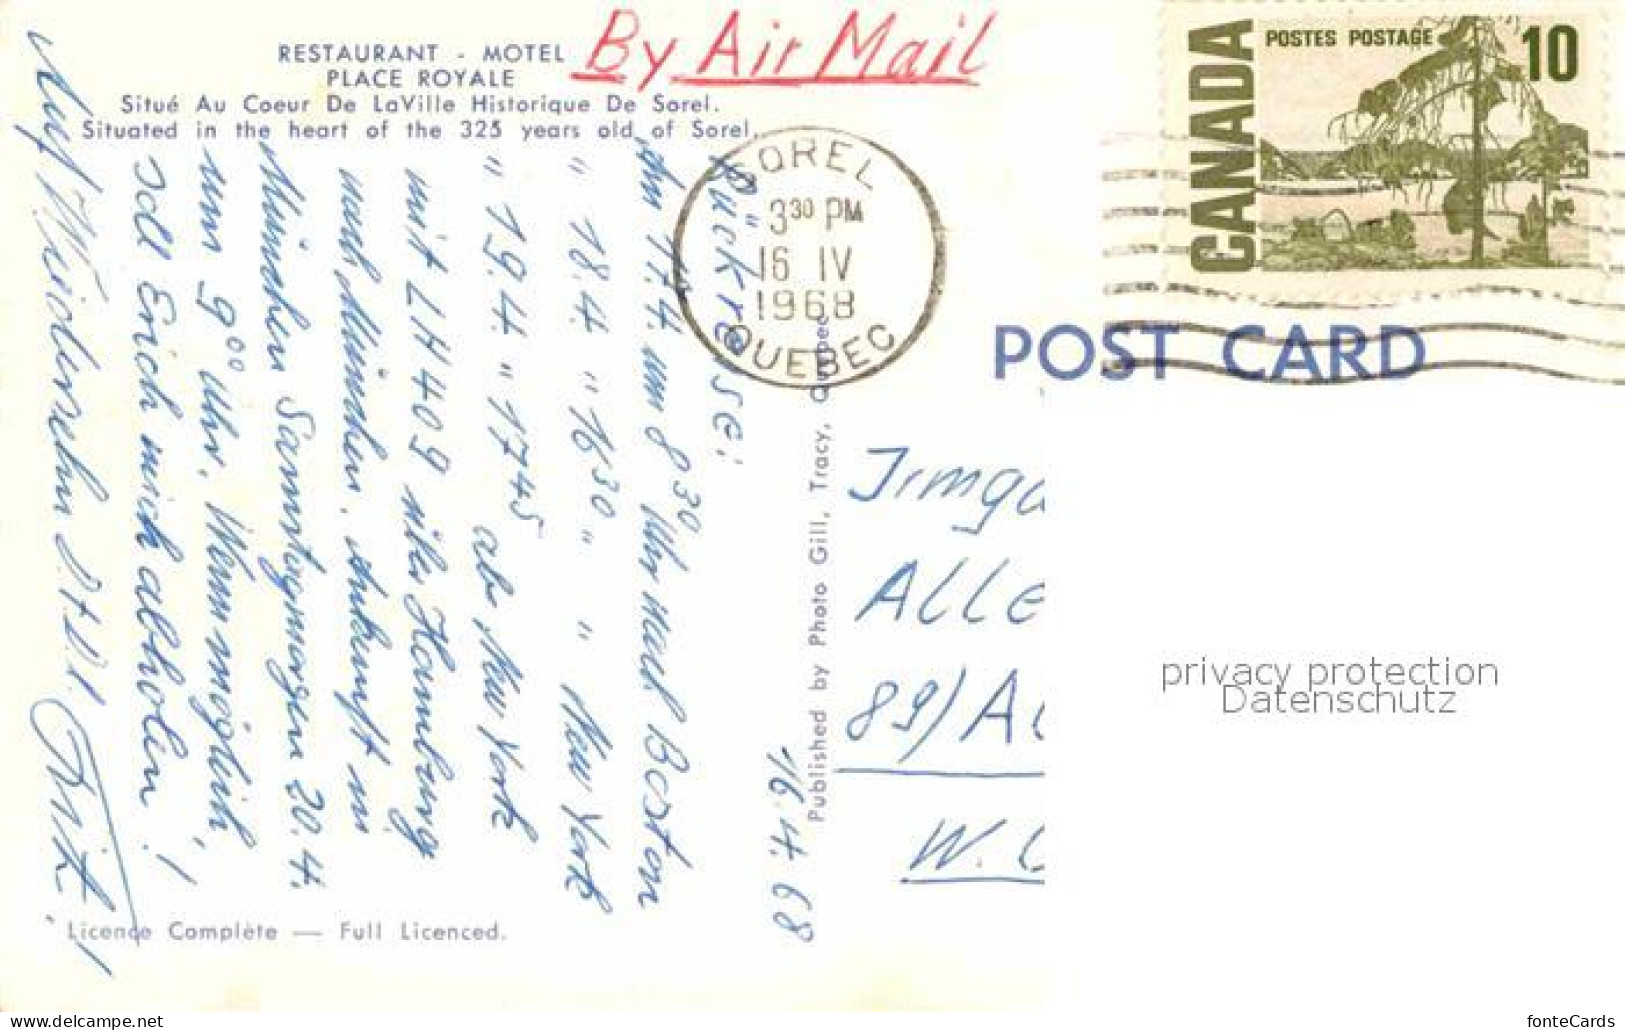 RESTAURANT - MOTEL
PLACE ROYALE
Situé Au Coeur De LaVille Historique De Sorel.
Situated in the heart of the 325 years old of Sorel.
By Air Mail
CANADA
POSTES POSTAGE 10
SOREL
3³⁰ PM
16 IV
1968
QUEBEC
POST CARD
16.4.68
Rückreise:
Am 17.4. um 8³⁰ Uhr nach Boston
" 18.4. " 16³⁰ " " New York
" 19.4. " 17⁴⁵ ab New York
mit LH 409 über Hamburg
nach München. Ankunft in
München Samstagmorgen 20.4.
um 9⁰⁰ Uhr. Wenn möglich,
soll Erich mich abholen!
Auf Wiedersehn
Published by Photo Gill, Tracy, Quebec
Irmga
Alle
89) A
W.
Licence Complète — Full Licenced.
privacy protection
Datenschutz
www.delcampe.net
fonteCards